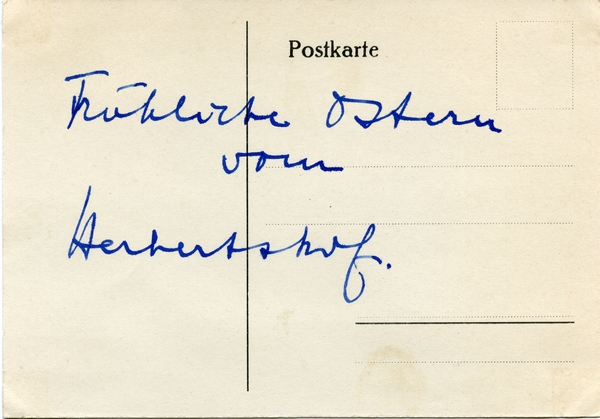 Postkarte
Fröhliche Ostern
vom
Herbertshof.